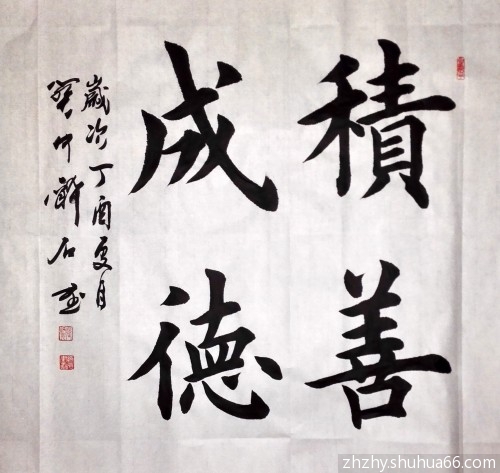 積善
成德
歲次丁酉夏月
石
zhzhyshuhua66.com